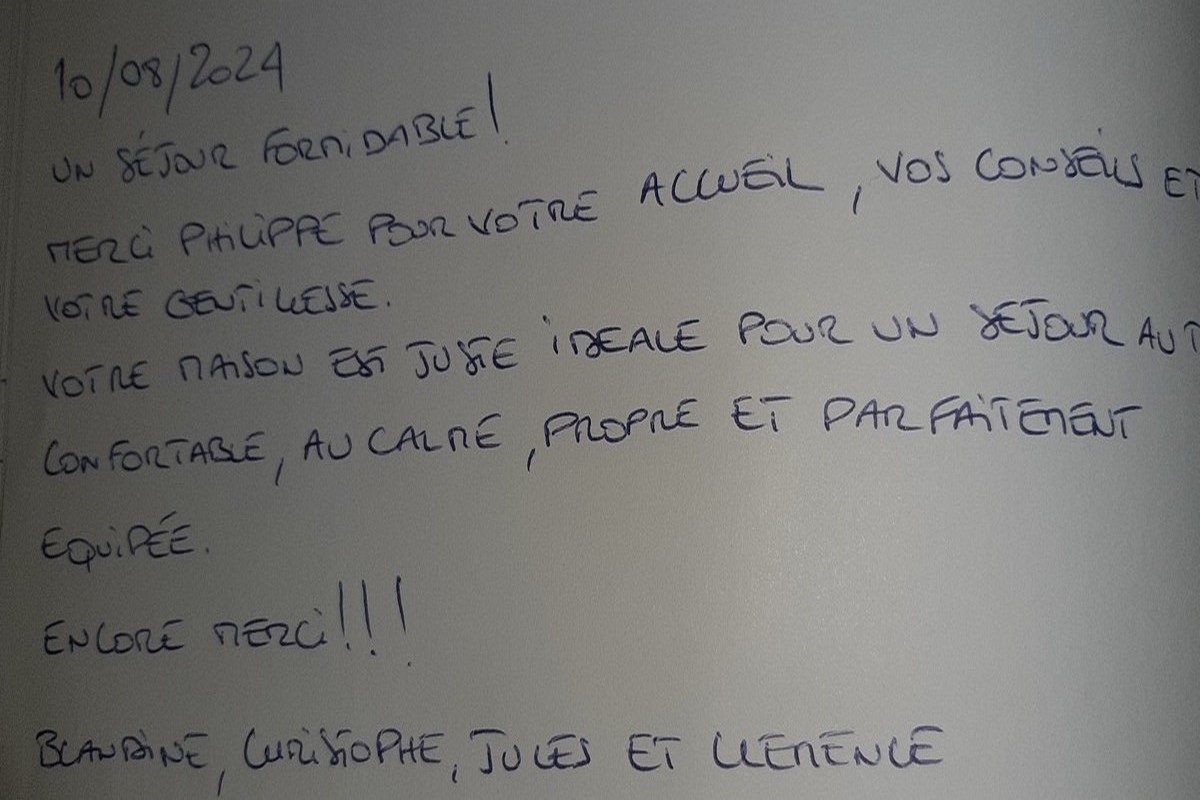 10/08/2024
UN SÉJOUR FORMIDABLE !
MERCI PHILIPPE POUR VOTRE ACCUEIL, VOS CONSEILS ET
VOTRE GENTILLESSE.
VOTRE MAISON EST JUSTE IDEALE POUR UN SEJOUR AU
CONFORTABLE, AU CALME, PROPRE ET PARFAITEMENT
EQUIPÉE.
ENCORE MERCI !!!
BLANDINE, CHRISTOPHE, JULES ET CLEMENCE